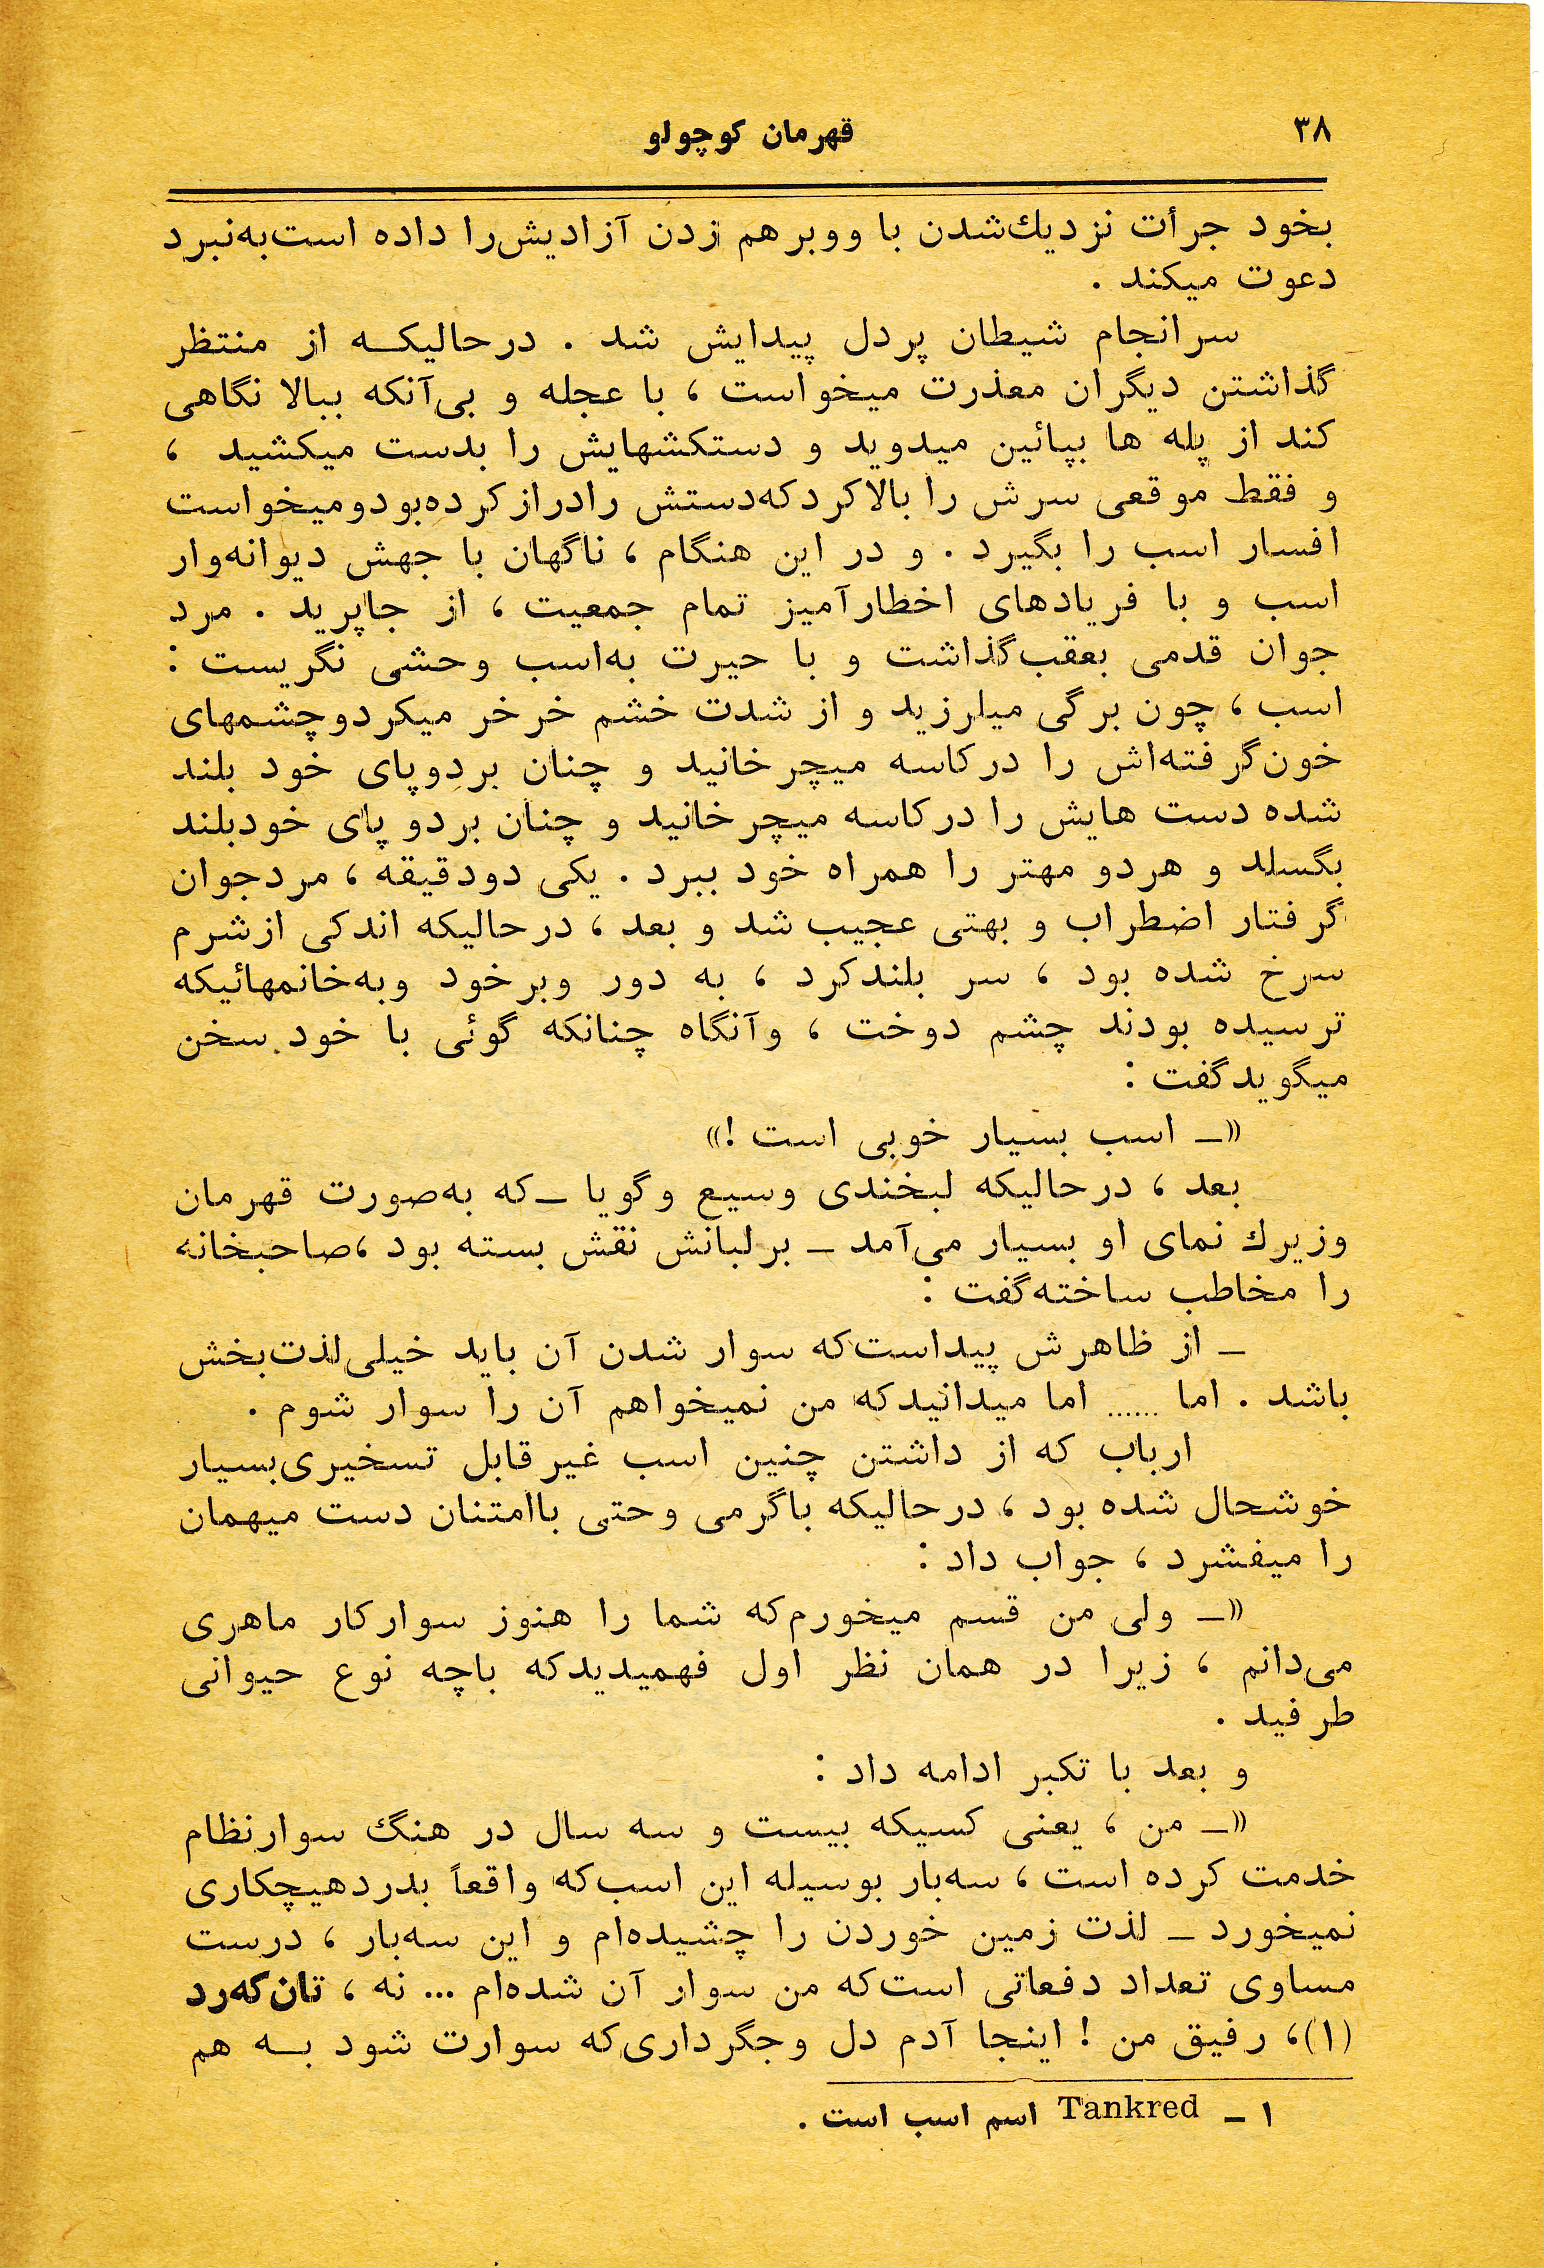 ۳۸
قهرمان کوچولو
بخود جرأت نزدیك‌شدن با ووبرهم زدن آزادیش‌را داده است‌به‌نبرد
دعوت میکند .
سرانجام شیطان پردل پیدایش شد . درحالیکـه از منتظر
گذاشتن دیگران معذرت میخواست ، با عجله و بی‌آنکه ببالا نگاهی
کند از پله ها بپائین میدوید و دستکشهایش را بدست میکشید ،
و فقط موقعی سرش را بالاکردکه‌دستش رادرازکرده‌بودومیخواست
افسار اسب را بگیرد . و در این هنگام ، ناگهان با جهش دیوانه‌وار
اسب و با فریادهای اخطارآمیز تمام جمعیت ، از جاپرید . مرد
جوان قدمی بعقب‌گذاشت و با حیرت به‌اسب وحشی نگریست :
اسب ، چون برگی میلرزید و از شدت خشم خرخر میکردوچشمهای
خون‌گرفته‌اش را درکاسه میچرخانید و چنان بردوپای خود بلند
شده دست هایش را درکاسه میچرخانید و چنان بردو پای خودبلند
بگسلد و هردو مهتر را همراه خود ببرد . یکی دودقیقه ، مردجوان
گرفتار اضطراب و بهتی عجیب شد و بعد ، درحالیکه اندکی ازشرم
سرخ شده بود ، سر بلندکرد ، به دور وبرخود وبه‌خانمهائیکه
ترسیده بودند چشم دوخت ، وآنگاه چنانکه گوئی با خود سخن
میگویدگفت :
«ـ اسب بسیار خوبی است !»
بعد ، درحالیکه لبخندی وسیع وگویا ـ‌که به‌صورت قهرمان
وزیرك نمای او بسیار می‌آمد ـ برلبانش نقش بسته بود ،صاحبخانه
را مخاطب ساخته‌گفت :
ـ از ظاهرش پیداست‌که سوار شدن آن باید خیلی‌لذت‌بخش
باشد . اما ...... اما میدانیدکه من نمیخواهم آن را سوار شوم .
ارباب که از داشتن چنین اسب غیرقابل تسخیری‌بسیار
خوشحال شده بود ، درحالیکه باگرمی وحتی باامتنان دست میهمان
را میفشرد ، جواب داد :
«ـ ولی من قسم میخورم‌که شما را هنوز سوارکار ماهری
می‌دانم ، زیرا در همان نظر اول فهمیدیدکه باچه نوع حیوانی
طرفید .
و بعد با تکبر ادامه داد :
«ـ من ، یعنی کسیکه بیست و سه سال در هنگ سوارنظام
خدمت کرده است ، سه‌بار بوسیله این اسب‌که واقعاً بدردهیچکاری
نمیخورد ـ لذت زمین خوردن را چشیده‌ام و این سه‌بار ، درست
مساوی تعداد دفعاتی است‌که من سوار آن شده‌ام ... نه ، تان‌که‌رد
(۱)، رفیق من ! اینجا آدم دل وجگرداری‌که سوارت شود بـه هم
۱ ـ Tankred اسم اسب است .